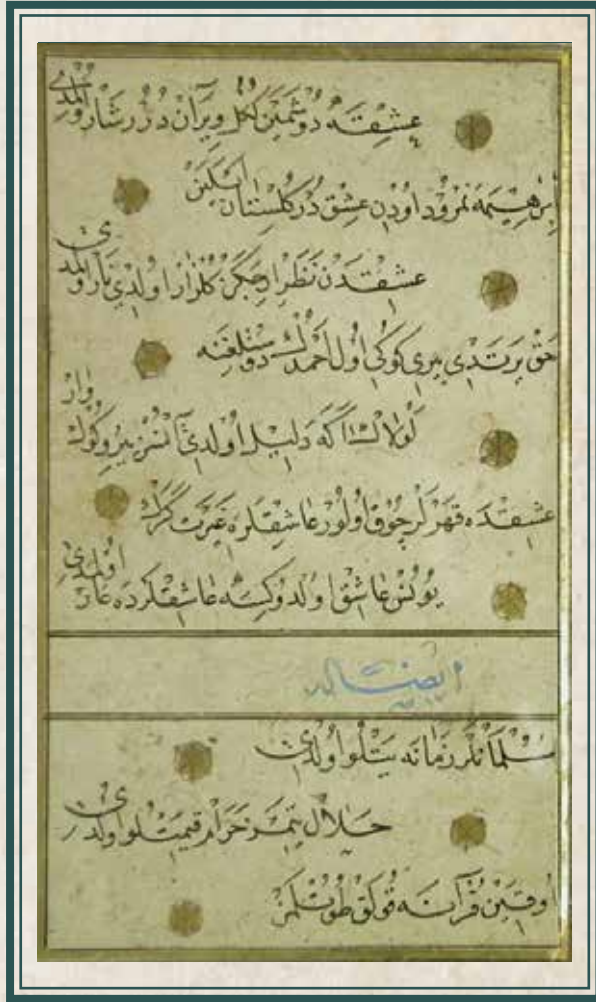 عشقه دوشمین ككل ویران درر شار اولمدی
ابرهیمه نمرود اودن عشق در كلستان ایلین
عشقدن نظر ارجكز كلزار اولدی نار اولمدی
حق یرتدی یری كوكی اول احمدك دوستلغنه
لولاك اكه دلیل اولدی آنسز یر و كوك وار
عشقده قهرلر چوق اولور عاشقلره غیرت كرك
یونس عاشق اولدوكسه عاشقلرده عار اولمدی
ایضا له
مسلمانلر زمانه یتلو اولدی
حلال ینمز حرام قیمتلو اولدی
اوقین قرآنه قولق طوتلمز